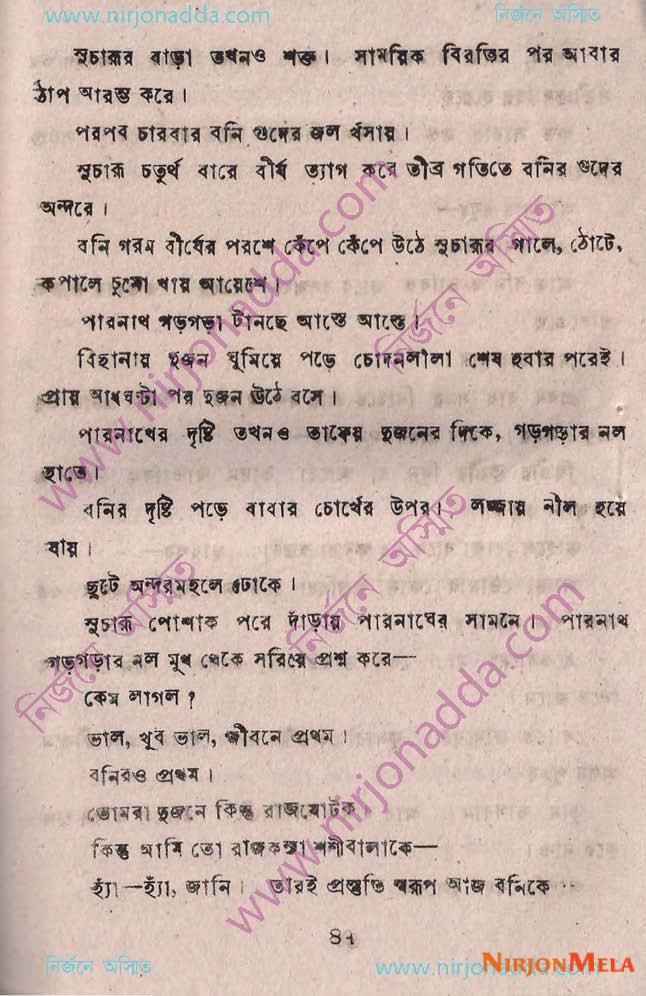 www.nirjonadda.com নির্জনে অস্মিত
সুচারুর বাড়া তখনও শক্ত। সাময়িক বিরতির পর আবার
ঠাপ আরম্ভ করে।
পরপব চারবার বনি গুদের জল খসায়।
সুচারু চতুর্থ বারে বীর্য ত্যাগ করে তীব্র গতিতে বনির গুদের
অন্দরে।
বনি গরম বীর্যের পরশে কেঁপে কেঁপে উঠে সুচারুর গালে, ঠোটে,
কপালে চুমো খায় আয়েশে।
পারনাথ গড়গড়া টানছে আস্তে আস্তে।
বিছানায় দুজন ঘুমিয়ে পড়ে চোদনলীলা শেষ হবার পরেই।
প্রায় আধঘণ্টা পর দুজন উঠে বসে।
পারনাথের দৃষ্টি তখনও তাদের দুজনের দিকে, গড়গড়ার নল
হাতে।
বনির দৃষ্টি পড়ে বাবার চোখের উপর। লজ্জায় নীল হয়ে
যায়।
ছুটে অন্দরমহলে ঢোকে।
সুচারু পোশাক পরে দাঁড়ায় পারনাথের সামনে। পারনাথ
গড়গড়ার নল মুখ থেকে সরিয়ে প্রশ্ন করে—
কেমন লাগল?
ভাল, খুব ভাল, জীবনে প্রথম।
বনিরও প্রথম।
তোমরা দুজনে কিন্তু রাজযোটক
কিন্তু আমি তো রাজকন্যা শশীবালাকে—
হ্যাঁ—হ্যাঁ, জানি। তারই প্রস্তুতি স্বরূপ আজ বনিকে
৪৭
নির্জনে অস্মিত www.nirjonadda.com
NIRJONMELA
www.nirjonadda.com নির্জনে অস্মিত
নির্জনে অস্মিত www.nirjonadda.com